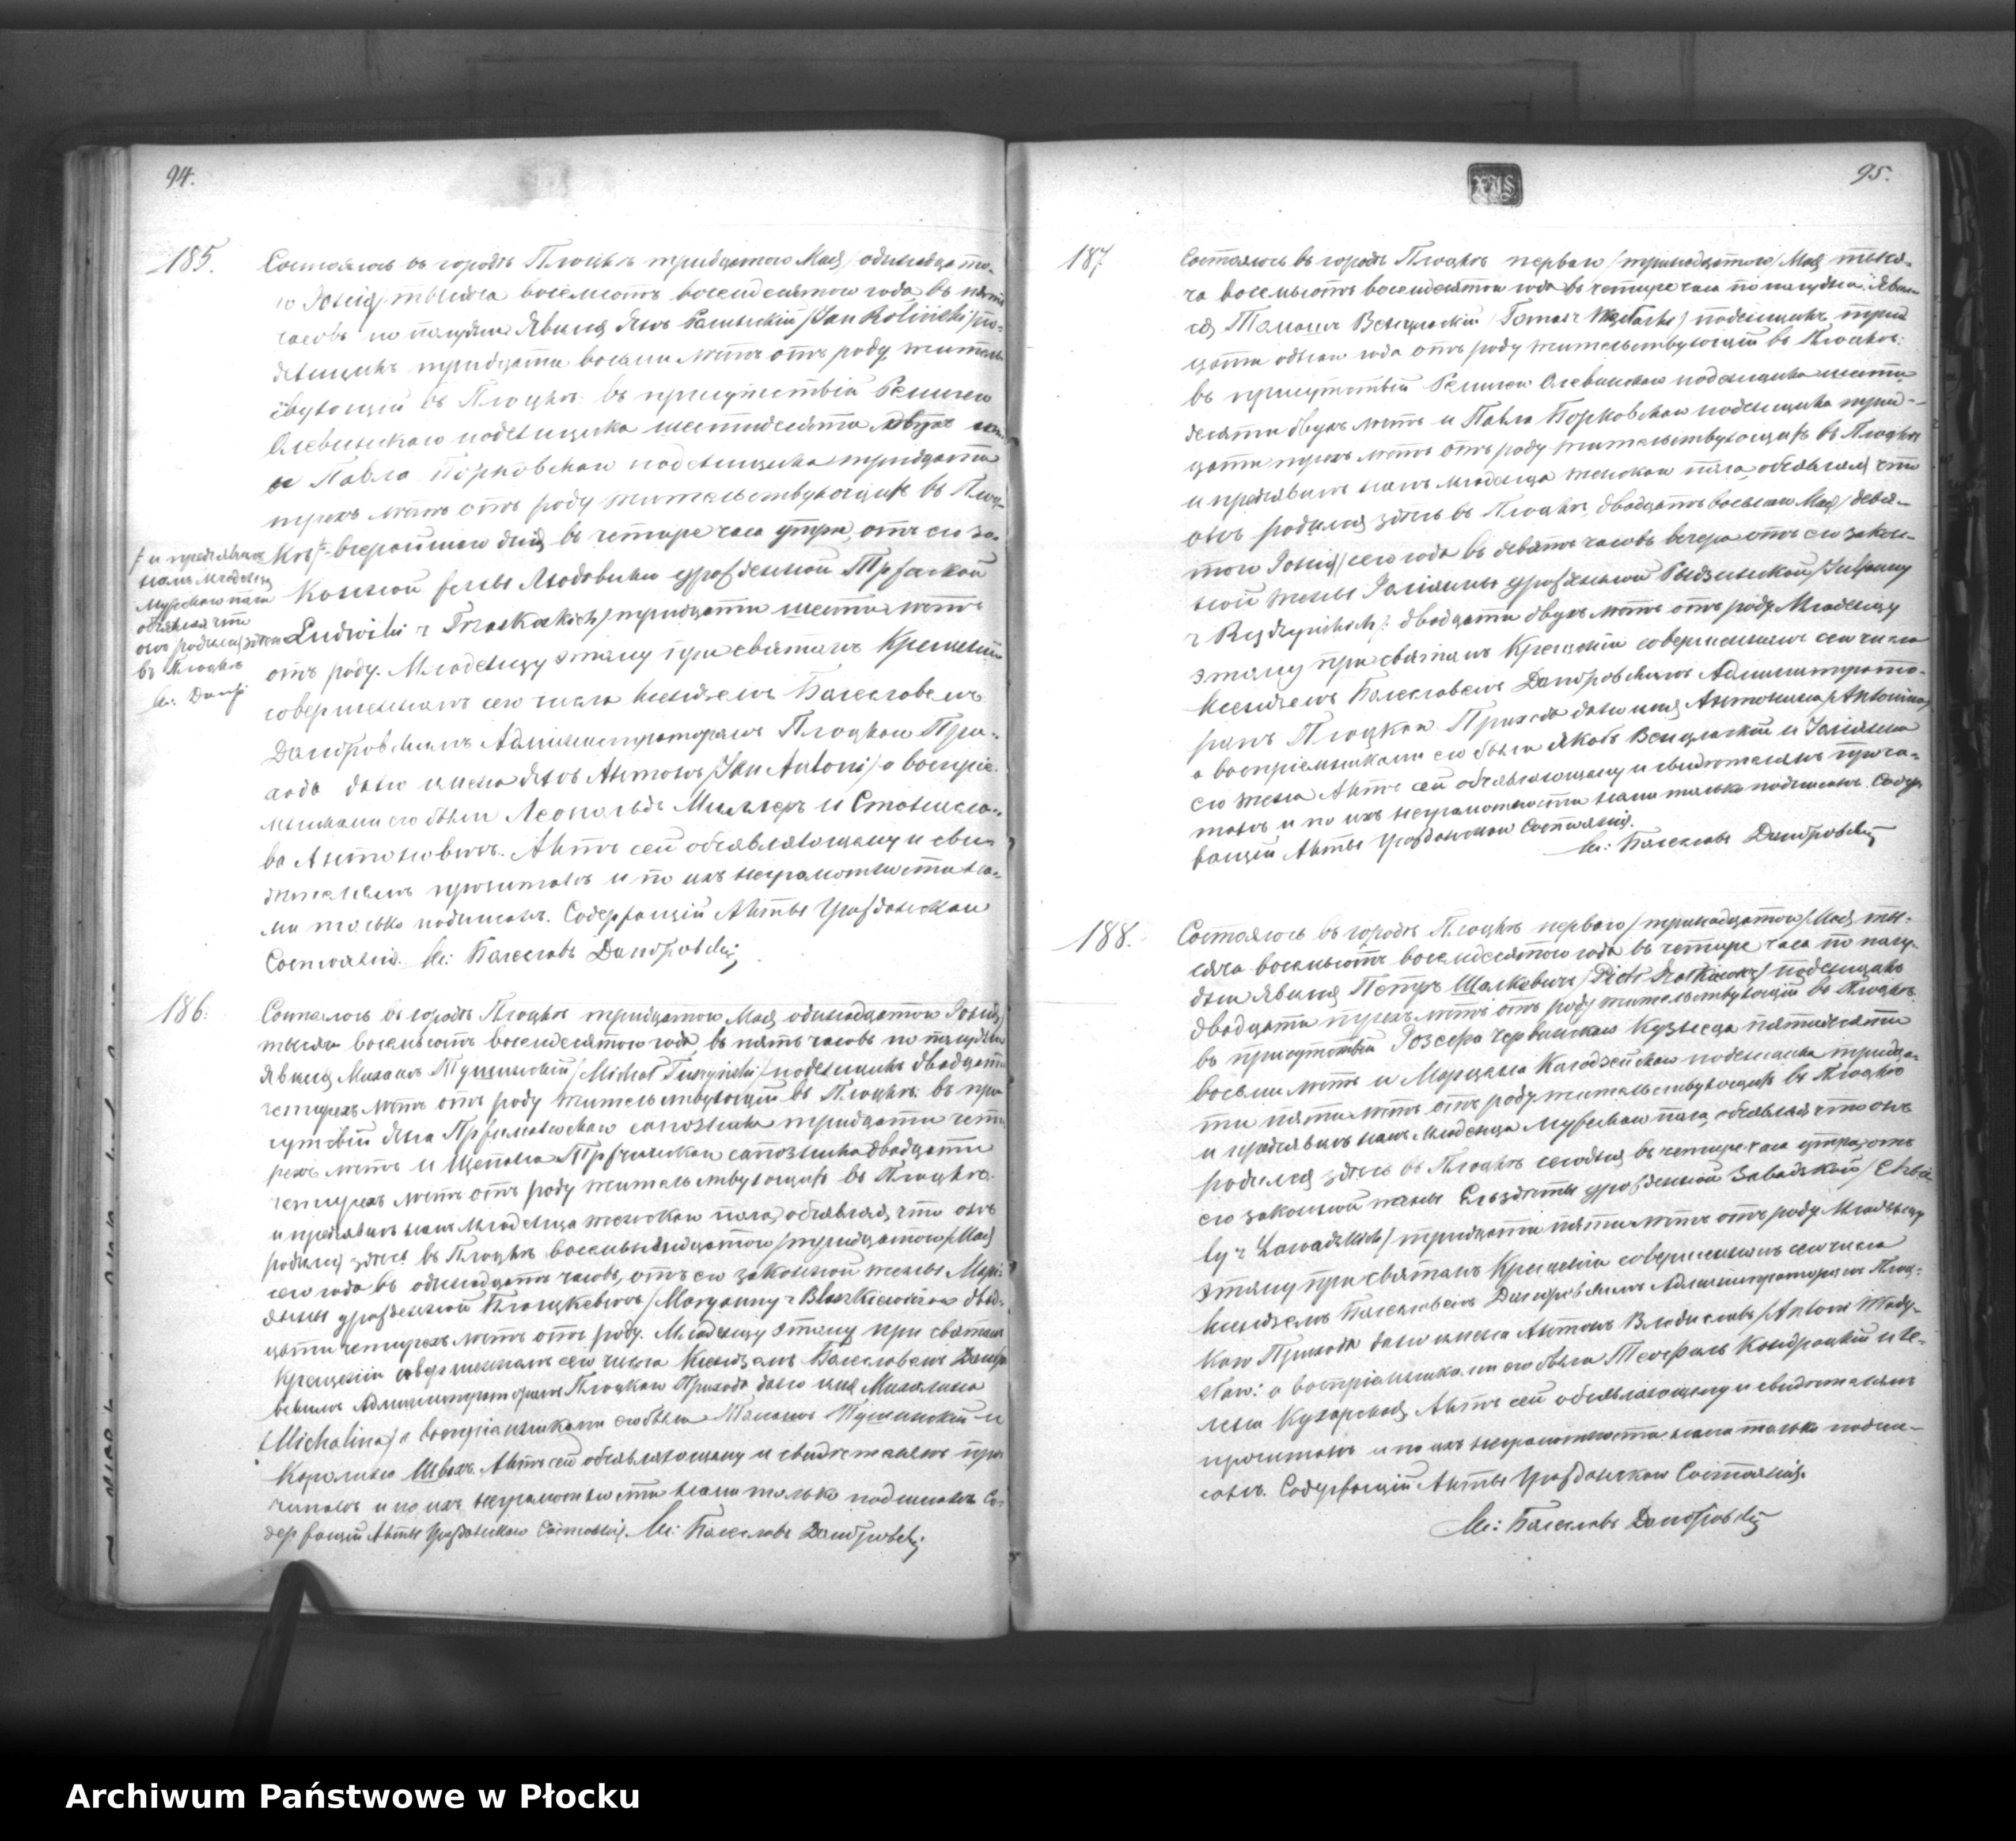 94.
185.
Состоялось въ городѣ Плоцкѣ тридцатого Мая/одинадцато-
го Іюня/тысяча восемьсотъ восемдесятого года въ пять
часовъ по полудни. Явился Янъ /Jan / по-
денщикъ тридцати восьми лѣтъ отъ роду жительст
вующій въ Плоцкѣ въ присутствіи
Олевинскаго поденщика шестидесяти двухъ
и Павла Борковскаго поденщика тридцати
трехъ лѣтъ отъ роду жительствующихъ въ Плоц-
кѣ вчерашняго дня въ четыре часа утра, отъ его за-
конной жены Людовики урожденной
Ludwiki z / тридцати шести лѣтъ
отъ роду. Младенцу этому при святомъ Крещеніи
совершенномъ сего числа Ксендзомъ Болеславомъ
Домбровскимъ Администраторомъ Плоцкаго При-
хода дано имена Янъ Антонъ/Jan Antoni/ а воспріе-
мниками его были Леопольдъ Миллеръ и Станисла-
ва Антоновичъ. Актъ сей объявляющему и сви-
дѣтелямъ прочитанъ и по ихъ неграмотности на-
ми только подписанъ. Содержащій Акты Гражданскаго
Состоянія. Кс: Болеславъ Домбровскій
и предъявилъ
намъ младенца
Мужескаго пола
объявляя что
онъ родился здѣсь
въ Плоцкѣ
Кс. Домб
186.
Состоялось въ городѣ Плоцкѣ тридцатого Мая одинадцатого Іюня/
тысяча восемьсотъ восемдесятого года, въ пять часовъ по полудни
Явился Михалъ /Michał / поденщикъ двадцати
четырехъ лѣтъ отъ роду жительствующій въ Плоцкѣ въ при-
сутствіи Яна сапожника тридцати четы
рехъ лѣтъ и Щепана сапожника двадцати
четырехъ лѣтъ отъ роду жительствующихъ въ Плоцкѣ
и предъявилъ намъ младенца женскаго пола, объявляя, что онъ
родился здѣсь въ Плоцкѣ восемнадцатого/тридцатого/Мая
сего года въ одинадцать часовъ, отъ его законной жены Мар-
янны урожденной /Maryanny z двад-
цати четырехъ лѣтъ отъ роду. Младенцу этому при святомъ
Крещеніи совершенномъ сего числа Ксендзомъ Болеславомъ Домбро
вскимъ Администраторомъ Плоцкаго Прихода дано имя Михалина
/Michalina/ а воспріемниками его были и
Каролина Актъ сей объявляющему и свидѣтелямъ про-
читанъ и по ихъ неграмотности нами только подписанъ Со-
держащій Акты Гражданскаго Состоянія. Кс: Болеславъ Домбровскій
95.
187.
Состоялось въ городѣ Плоцкѣ перваго/тринадцатого/Мая тыся-
ча восемьсотъ восемдесятого года въ четыре часа по полудни. Явил-
ся Томашъ /Tomasz / поденщикъ трид
цати одного года отъ роду жительствующій въ Плоцкѣ:
въ присутствіи Олевинскаго поденщика шести-
десяти двухъ лѣтъ и Павла Борковскаго поденщика трид-
цати трехъ лѣтъ отъ роду жительствующихъ въ Плоцкѣ
и предъявилъ намъ младенца женскаго пола, объявляя что
онъ родился здѣсь въ Плоцкѣ двадцать восьмого Мая/девя-
того Іюня/сего года въ девять часовъ вечера отъ его закон-
ной жены урожденной
z двадцати двухъ лѣтъ отъ роду. Младенцу
этому при святомъ Крещеніи совершенномъ сего числа
Ксендзомъ Болеславомъ Домбровскимъ Администрато-
ромъ Плоцкаго Прихода дано имя Антонина/Antonina/
а воспріемниками его были Якобъ и
его жена Актъ сей объявляющему и свидѣтелямъ прочи-
танъ и по ихъ неграмотности нами только подписанъ. Содер
жащій Акты Гражданскаго Состоянія.
Кс: Болеславъ Домбровскій
188.
Состоялось въ городѣ Плоцкѣ перваго/тринадцатого/Мая ты-
сяча восемьсотъ восемдесятого года въ четыре часа по полу-
дни Явился Петръ /Piotr / поденщикъ
двадцати трехъ лѣтъ отъ роду жительствующій въ Плоцкѣ
въ присутствіи Іозефа Червинскаго Кузнеца пятидесяти
восьми лѣтъ и поденщика тридца-
ти пяти лѣтъ отъ роду жительствующихъ въ Плоцкѣ
и предъявилъ намъ младенца мужескаго пола, объявляя что онъ
родился здѣсь въ Плоцкѣ сегодня въ четыре часа утра, отъ
его законной жены урожденной Завадской/
z Zawadzkich/ тридцати пяти лѣтъ отъ роду. Младенцу
этому при святомъ Крещеніи совершенномъ сего числа
Ксендзомъ Болеславомъ Домбровскимъ Администраторомъ Плоц-
каго Прихода дано имена Антонъ Владиславъ/Antoni Włady-
sław: а воспріемниками его были Теофиль и Ге-
лена Актъ сей объявляющему и свидѣтелямъ
прочитанъ и по ихъ неграмотности нами только подпи-
санъ. Содержащій Акты Гражданскаго Состоянія.
Кс: Болеславъ Домбровскій
Archiwum Państwowe w Płocku